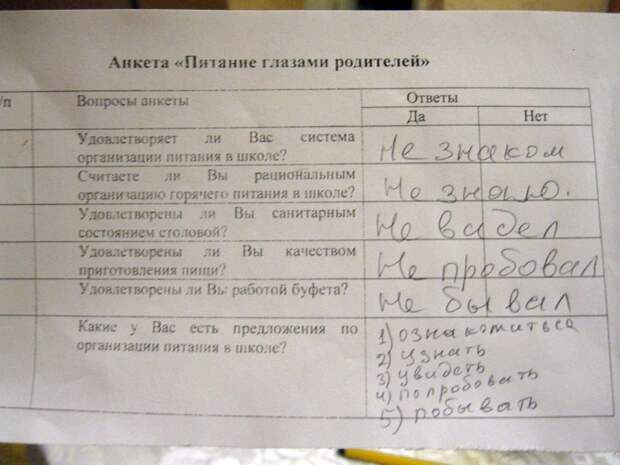 Анкета «Питание глазами родителей»
/п
Вопросы анкеты
Ответы
Да
Нет
Удовлетворяет ли Вас система
организации питания в школе?
Не знаком
Считаете ли Вы рациональным
организацию горячего питания в школе?
Не знаю.
Удовлетворены ли Вы санитарным
состоянием столовой?
Не видел
Удовлетворены ли Вы качеством
приготовления пищи?
Не пробовал
Удовлетворены ли Вы работой буфета?
Не бывал
Какие у Вас есть предложения по
организации питания в школе?
1) ознакомиться
2) узнать
3) увидеть
4) попробовать
5) побывать